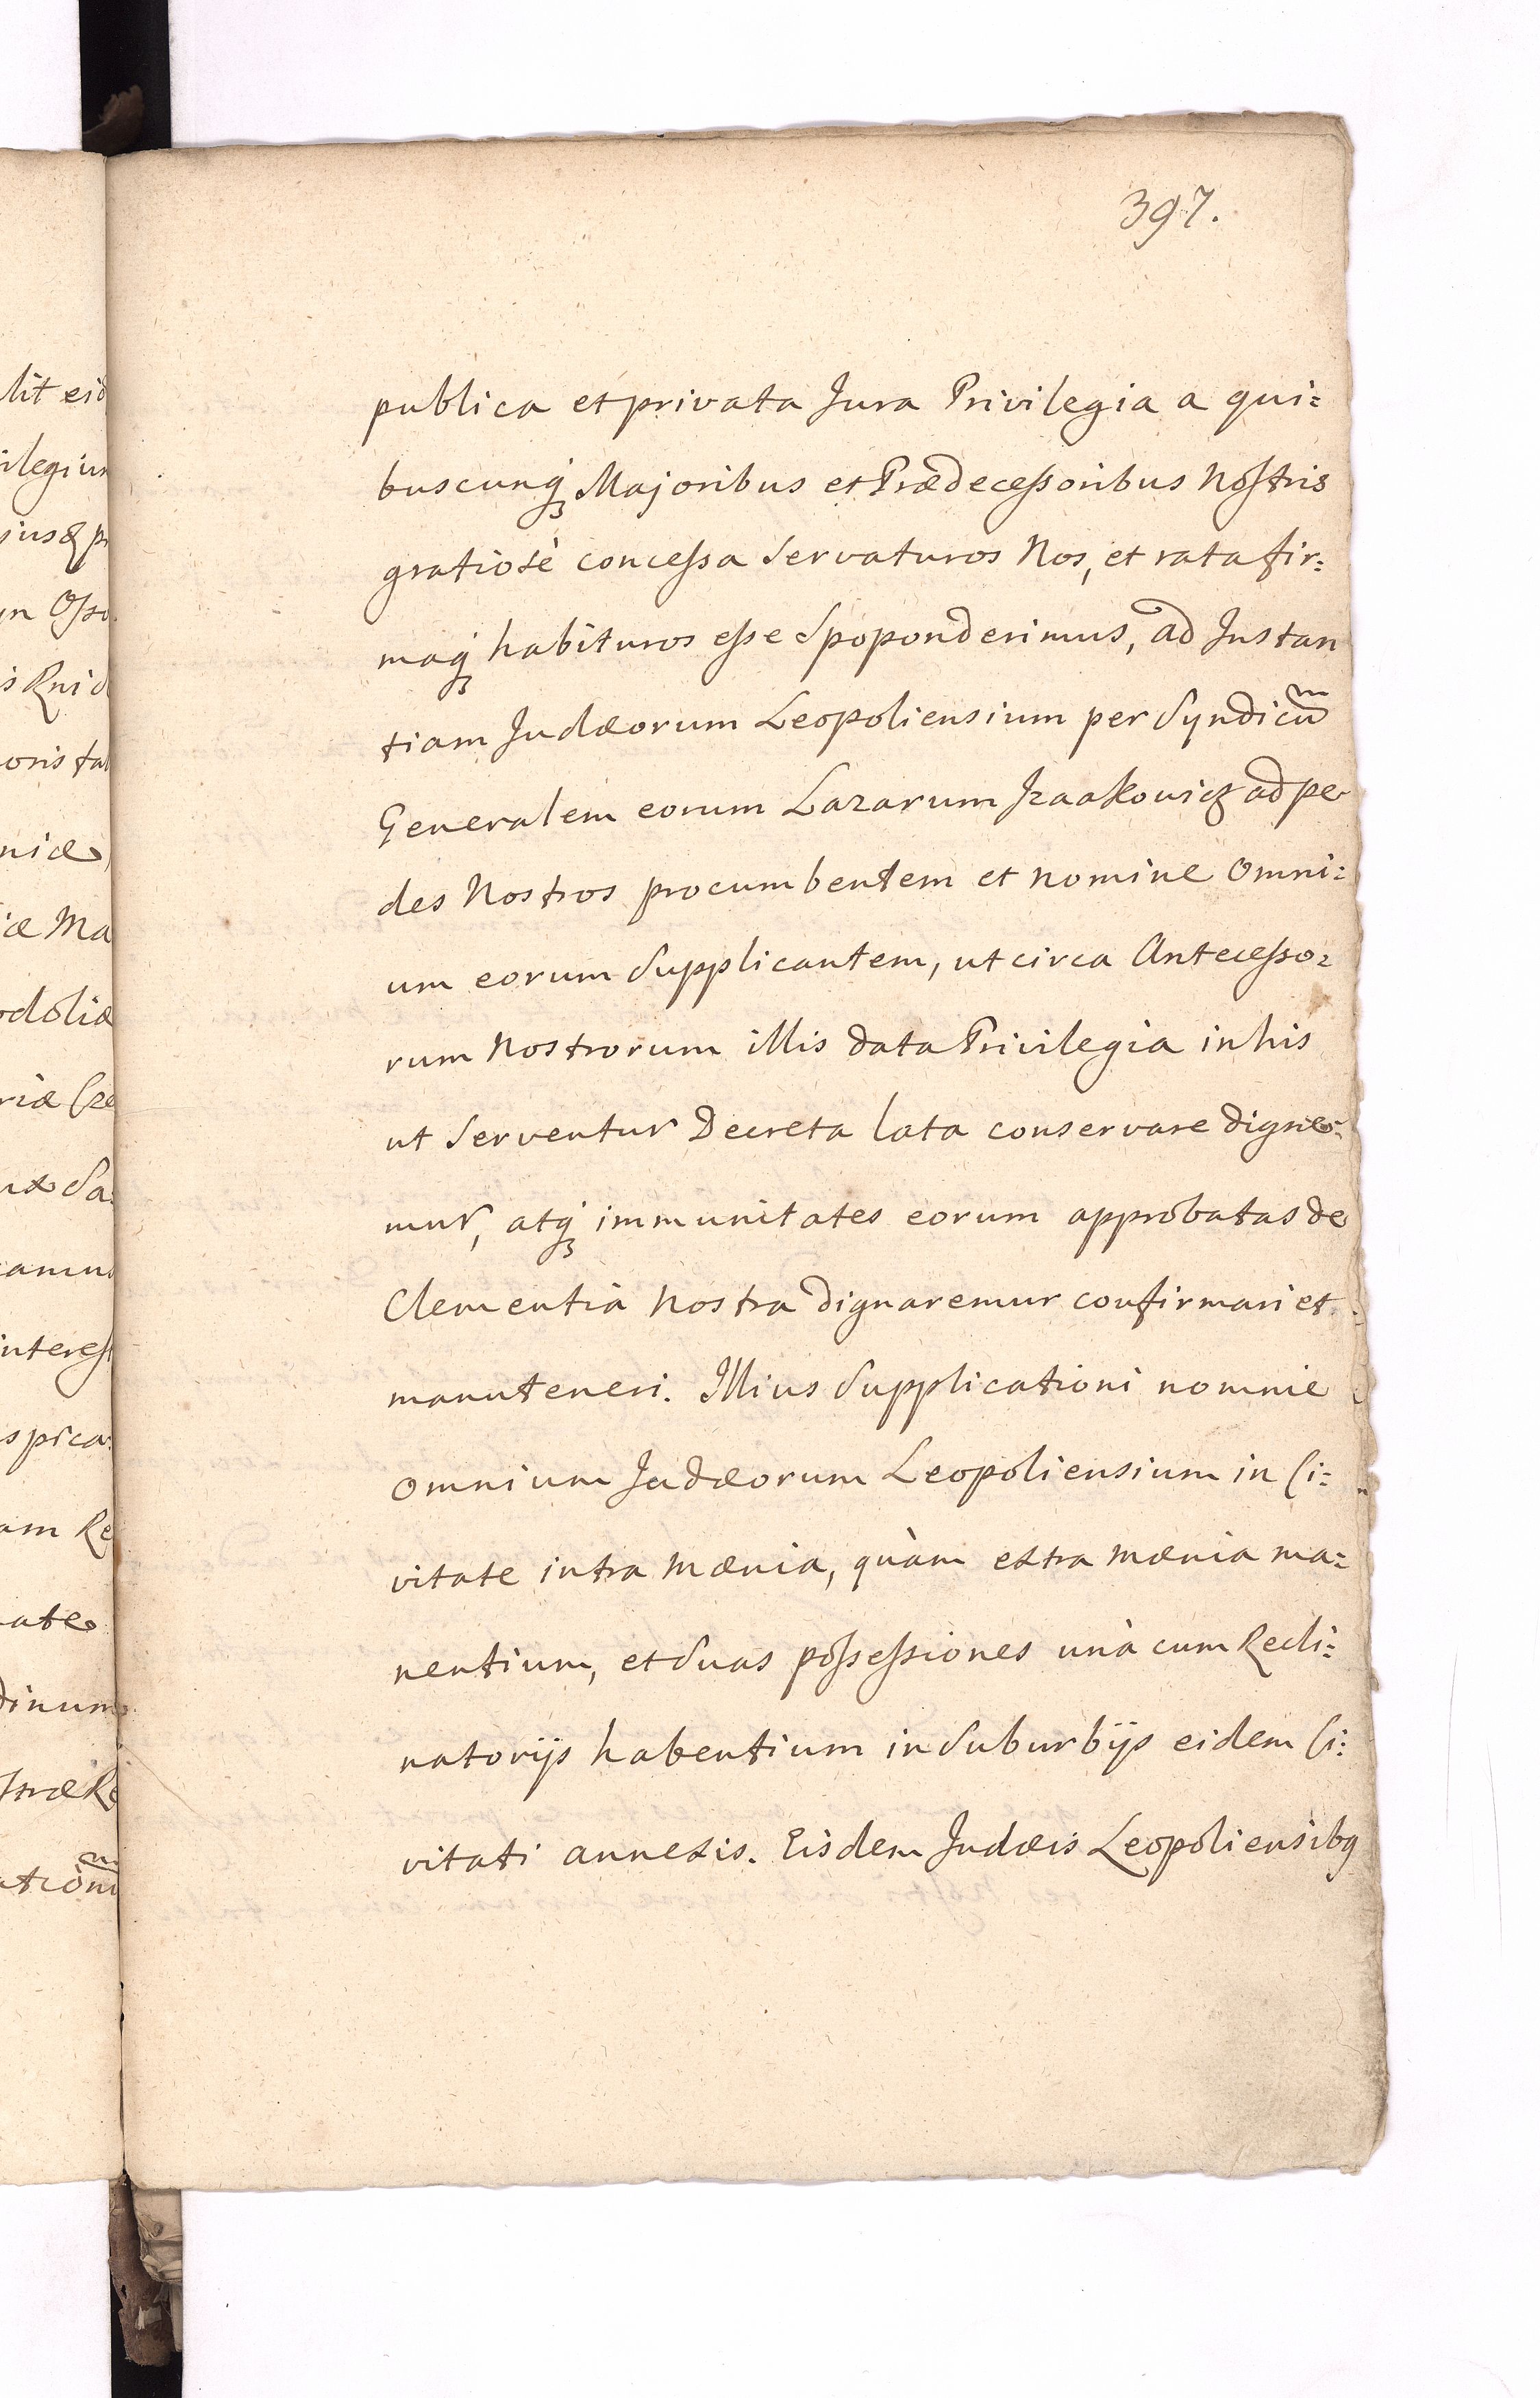 397.
publica et privata Jura Privilegia a qui=
buscunq; Majoribus et Prædecessoribus Nostris
gratiosè concessa servaturos Nos, et rata fir=
maq; habituros esse spoponderimus, ad Instan
tiam Judæorum Leopoliensium per Syndicũ
Generalem eorum Lazarum Jzaakowicz ad pe
des Nostros procumbentem et nomine Omni=
um eorum supplicantem, ut circa Antecesso=
rum Nostrorum illis data Privilegia in his
ut serventur Decreta lata conservare digne=
mur, atq; immunitates eorum approbatas de
Clementia Nostra dignaremur confirmari et
manuteneri. Illius supplicationi nomine
Omnium Judæorum Leopoliensium in Ci=
vitate intra Mænia, quàm extra Mænia ma=
nentium, et suas possessiones unà cum Recli=
natorijs habentium in suburbijs eidem Ci=
vitati annexis. Eisdem Judæis Leopoliensibq
lit eid
ilegium
n Osso
is Kuid
oris tal
niæ
iæ Ma
odoliæ
riæ Cze
camus
interest
spica=
am Re
ate
dinum
stræ Re